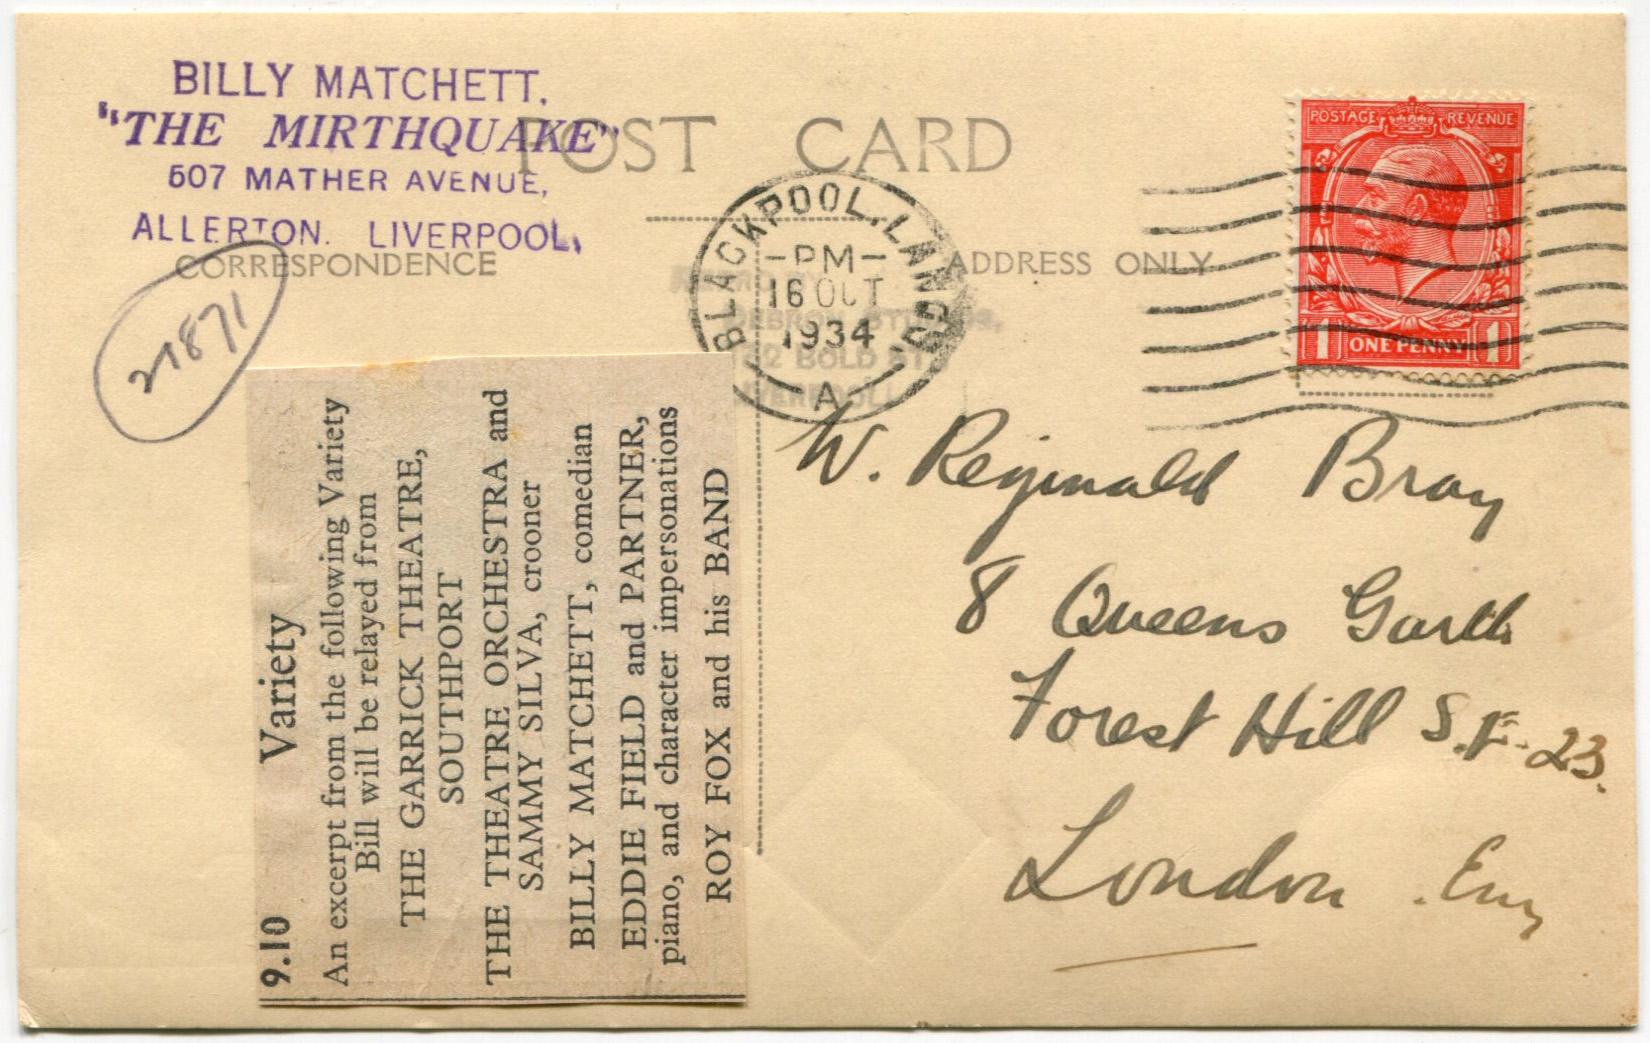 BILLY MATCHETT.
"THE MIRTHQUAKE"
607 MATHER AVENUE,
ALLERTON. LIVERPOOL.
POST CARD
CORRESPONDENCE
ADDRESS ONLY
21871
BLACKPOOL, LANCS.
-PM-
16 OCT
1934
A
BOLD ST
POSTAGE REVENUE
1 ONE PENNY 1
W. Reginald Bray
8 Queens Garth
Forest Hill S.E. 23.
London. Eng
9.10 Variety
An excerpt from the following Variety
Bill will be relayed from
THE GARRICK THEATRE,
SOUTHPORT
THE THEATRE ORCHESTRA and
SAMMY SILVA, crooner
BILLY MATCHETT, comedian
EDDIE FIELD and PARTNER,
piano, and character impersonations
ROY FOX and his BAND